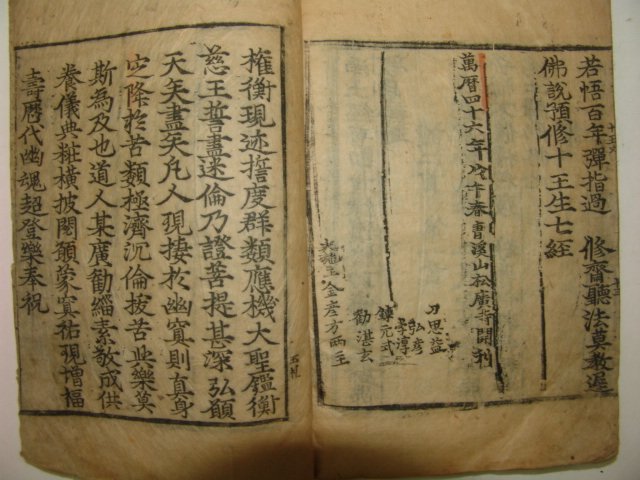 若悟百年彈指過 修齋聽法莫敎遲
佛說預修十王生七經
萬曆四十六年戊午春曹溪山松廣寺開刊
刀思益
弘彦
李淳
鍊元式
勸湛玄
大施主金彦方兩主
權衡現迹誓度群類應機大聖鑑衡
慈王誓盡迷倫乃證菩提甚深弘願
天矣盡矣凡人現捿於幽冥則眞身
必降於苦類極濟沉倫拔苦與樂莫
斯爲及也道人某廣勸緇素敎成供
養儀典粧橫披閱願蒙冥祐現增福
壽曆代幽魂超登樂奉祝